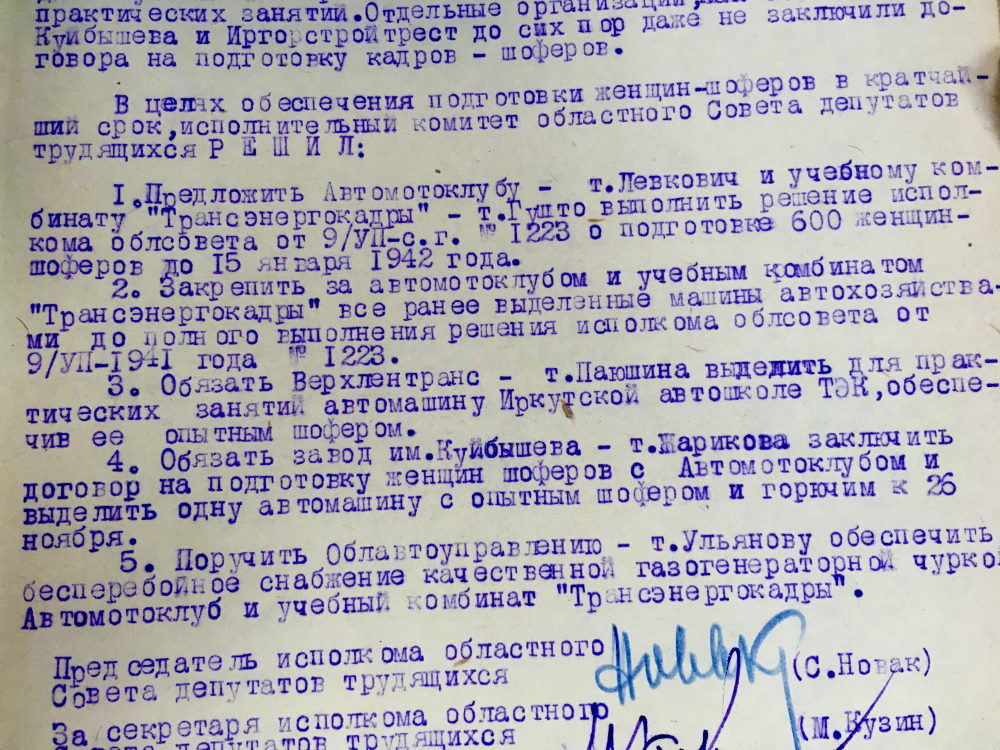 практических занятий.Отдельные организации,
Куйбышева и Иргорстройтрест до сих пор даже не заключили до-
говора на подготовку кадров - шоферов.
В целях обеспечения подготовки женщин-шоферов в кратчай-
ший срок,исполнительный комитет областного Совета депутатов
трудящихся Р Е Ш И Л:
1.Предложить Автомотоклубу - т.Левкович и учебному ком-
бинату "Трансэнергокадры" - т.Гушто выполнить решение испол-
кома облсовета от 9/УП-с.г. № 1223 о подготовке 600 женщин-
шоферов до 15 января 1942 года.
2. Закрепить за автомотоклубом и учебным комбинатом
"Трансэнергокадры" все ранее выделенные машины автохозяйства-
ми до полного выполнения решения исполкома облсовета от
9/УП-1941 года № 1223.
3. Обязать Верхлентранс - т.Паюшина выделить для прак-
тических занятий автомашину Иркутской автошколе ТЭК,обеспе-
чив ее опытным шофером.
4. Обязать завод им.Куйбышева - т.Жарикова заключить
договор на подготовку женщин шоферов с Автомотоклубом и
выделить одну автомашину с опытным шофером и горючим к 26
ноября.
5. Поручить Облавтоуправлению - т.Ульянову обеспечить
бесперебойное снабжение качественной газогенераторной чурко
Автомотоклуб и учебный комбинат "Трансэнергокадры".
Председатель исполкома областного
Совета депутатов трудящихся
Новак
(С.Новак)
За секретаря исполкома областного
Совета депутатов трудящихся
(М.Кузин)